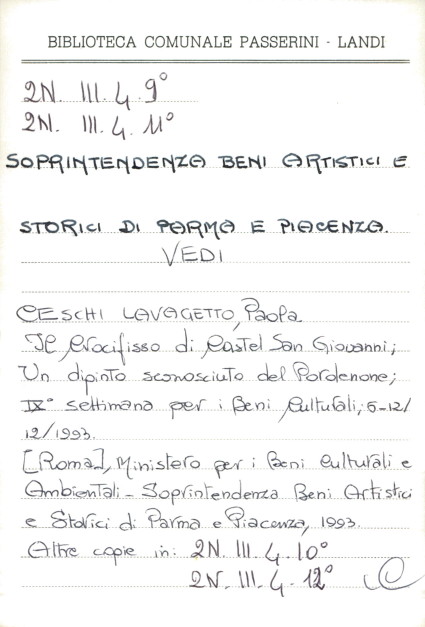 BIBLIOTECA COMUNALE PASSERINI - LANDI
2N. III. 4. 9°
2N. III. 4. 11°
SOPRINTENDENZA BENI ARTISTICI E
STORICI DI PARMA E PIACENZA.
VEDI
CESCHI LAVAGETTO, Paola
Il Crocifisso di Castel San Giovanni;
Un dipinto sconosciuto del Pordenone;
IX° settimana per i Beni Culturali, 6-12/
12/1993.
[Roma], Ministero per i Beni Culturali e
Ambientali - Soprintendenza Beni Artistici
e Storici di Parma e Piacenza, 1993.
Altre copie in: 2N. III. 4. 10°
2N. III. 4. 12°